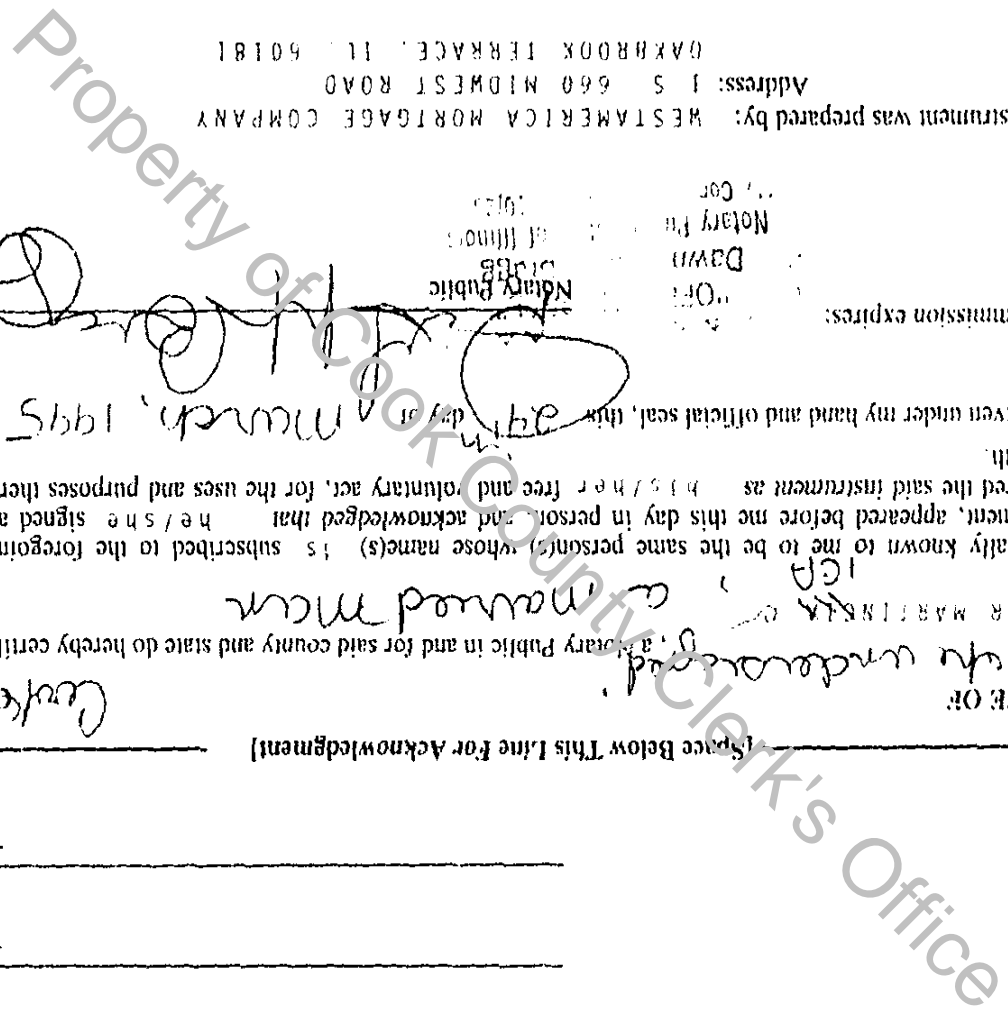 [Space Below This Line For Acknowledgment]
E OF
the undersigned, a Notary Public in and for said county and state do hereby certif
R MARTIN
ICA , a married man
ally known to me to be the same person(s) whose name(s) is subscribed to the foregoin
ment, appeared before me this day in person, and acknowledged that he/she signed a
red the said instrument as his/her free and voluntary act, for the uses and purposes ther
th.
iven under my hand and official seal, this 29th day of March, 1995
mmission expires:
Notary Public
Dawn
Notary Pu
of Illinois
Cor
strument was prepared by: WESTAMERICA MORTGAGE COMPANY
Address: 1 S 660 MIDWEST ROAD
OAKBROOK TERRACE, IL 60181
Property of Cook County Clerk's Office